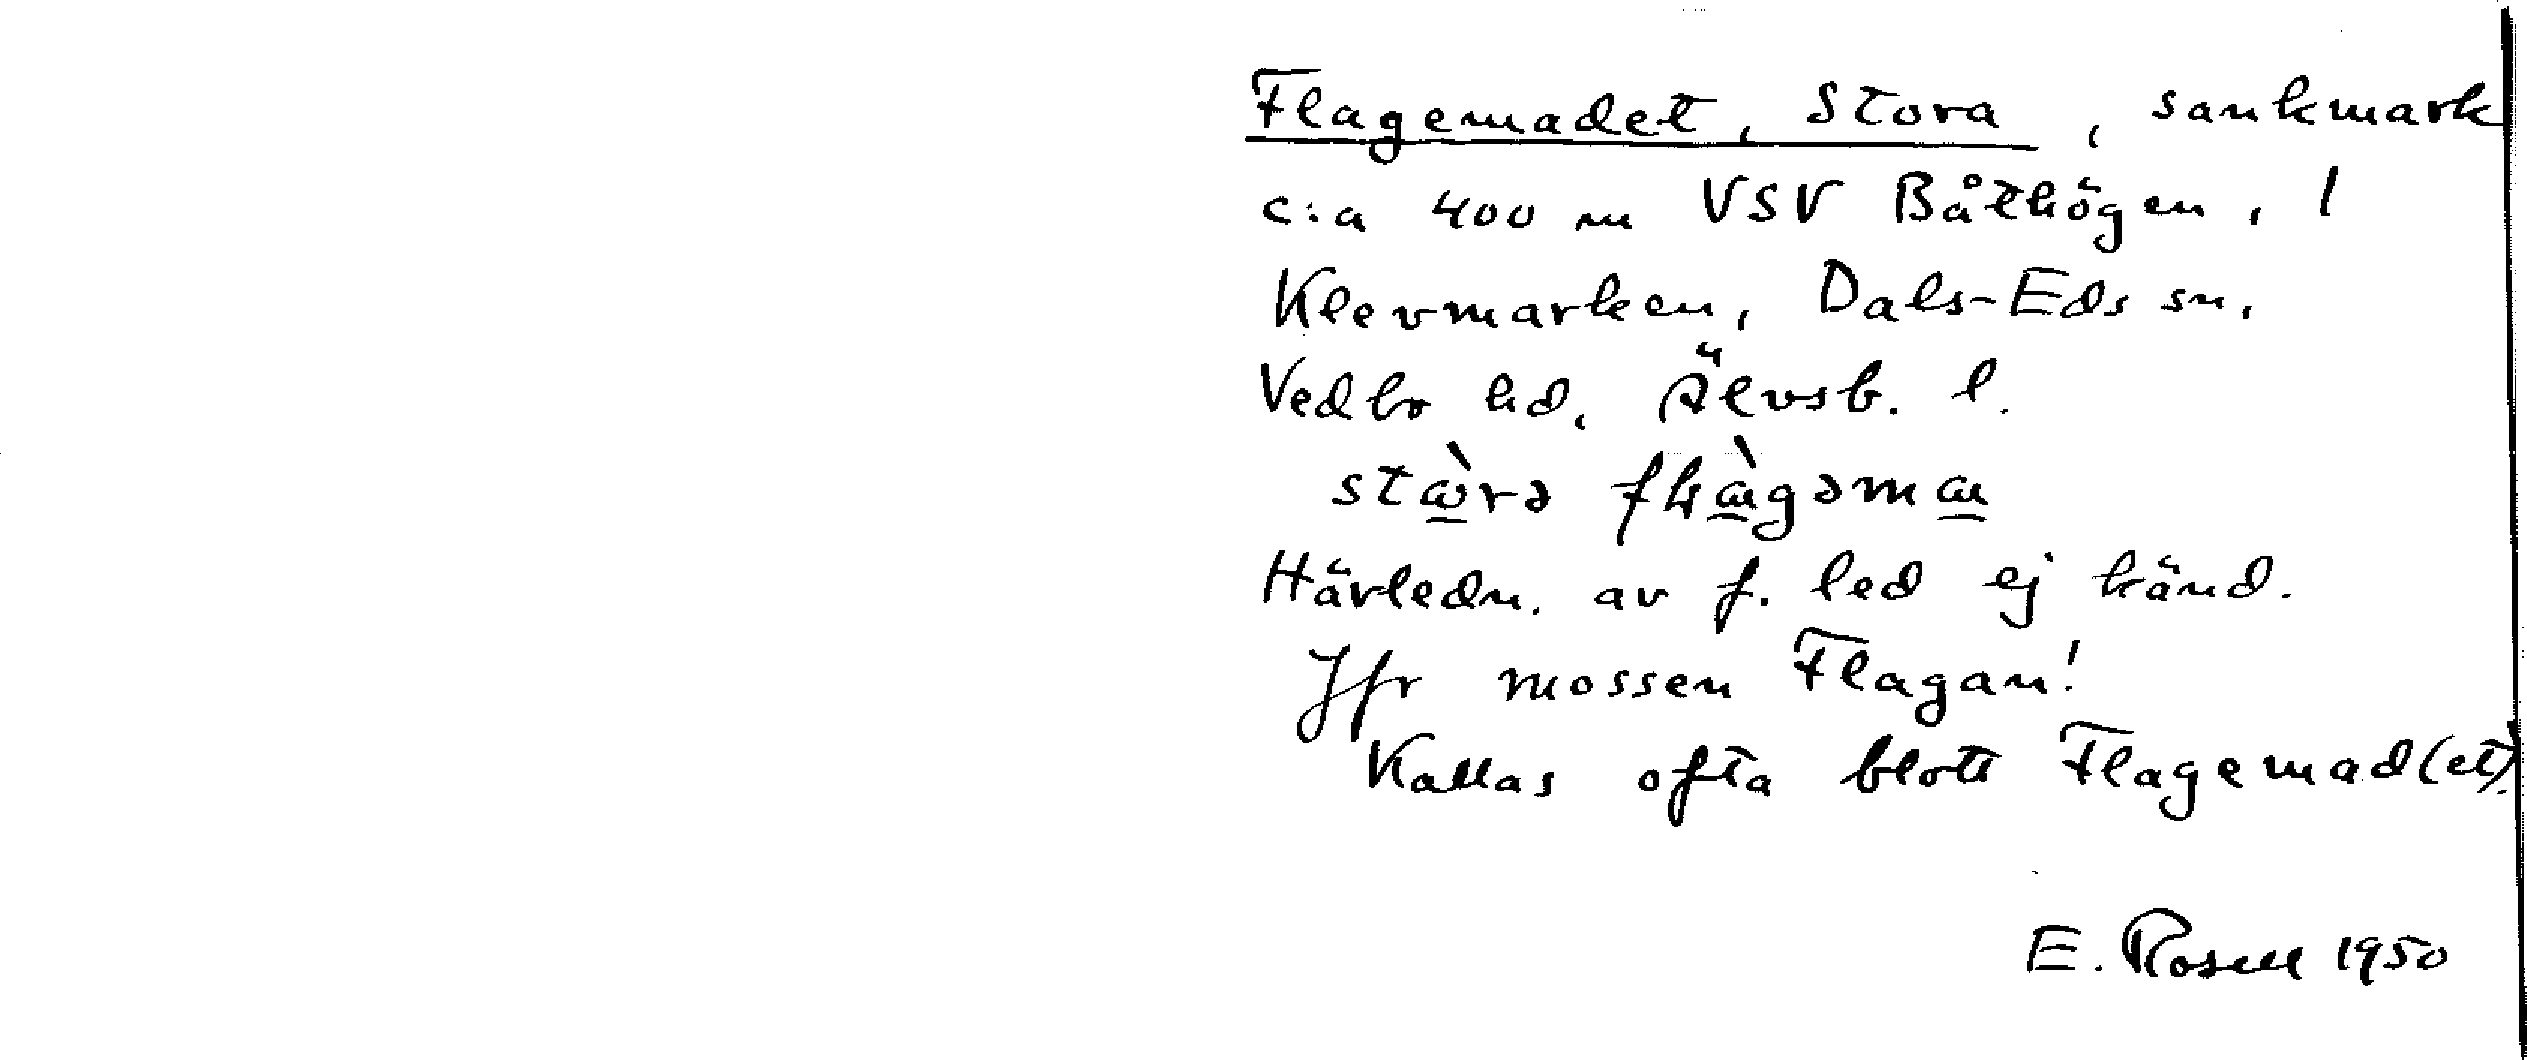 Flagemadet, Stora, sankmark
c:a 400 m VSV Båthögen, 1
Klevmarken, Dals-Eds sn,
Vedbo hd, Älvsb. l.
Härledn. av f. led ej känd.
Jfr mossen Flagan!
Kallas ofta blott Flagemad(et).
E. Rosell 1950